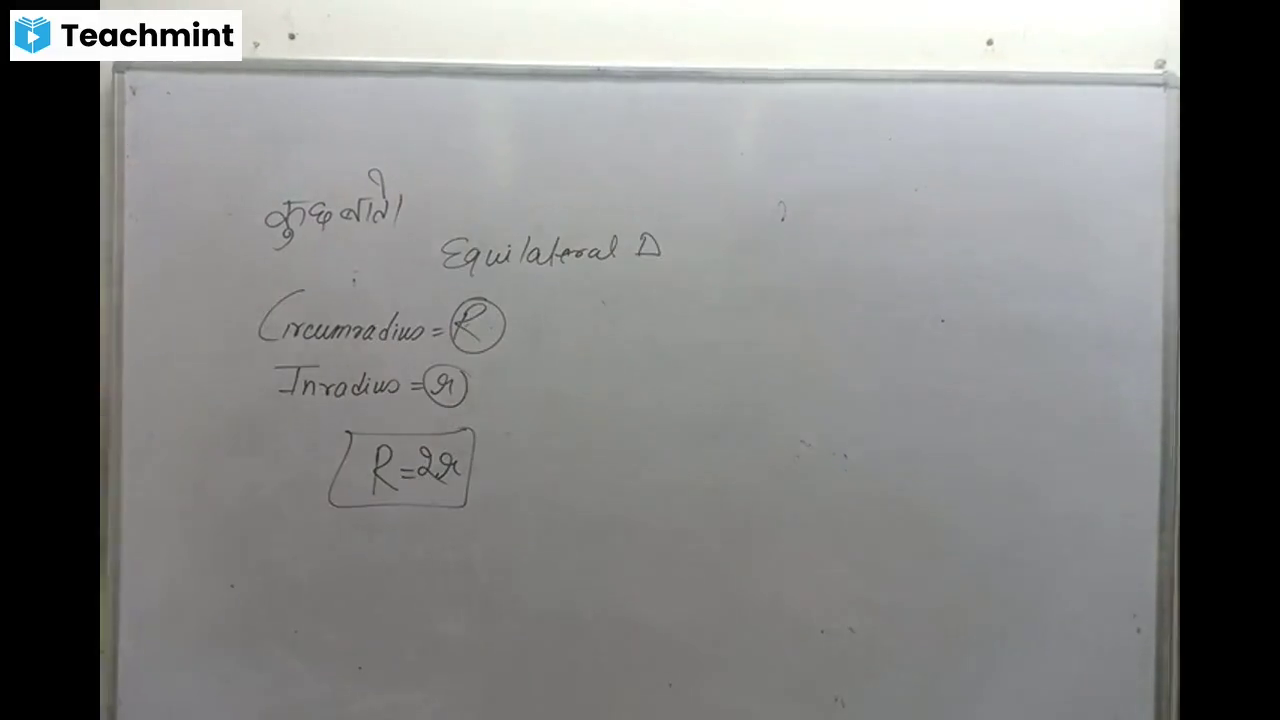 Teachmint
कुछ बाते।
Equilateral Δ
Circumradius = R
Inradius = r
R = 2r